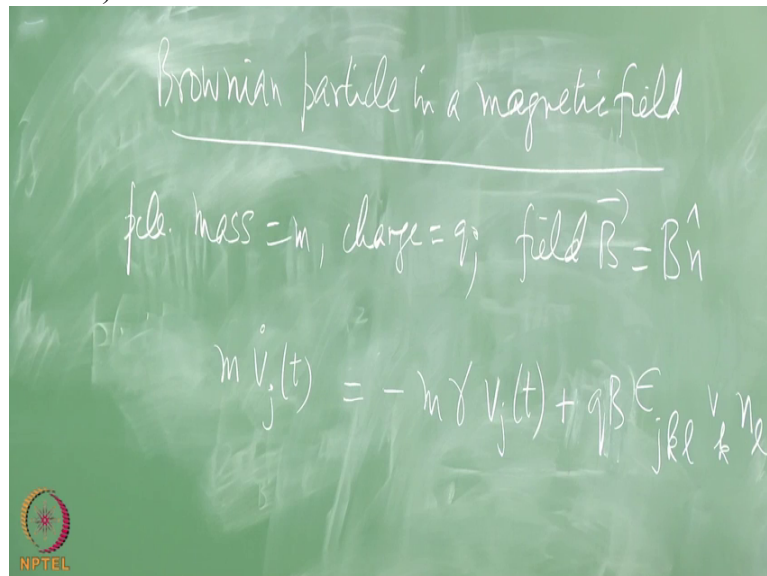 Brownian particle in a magnetic field
pcle. mass = m, charge = q; field \vec{B} = B\hat{n}
m \dot{v}_j(t) = - m γ v_j(t) + qB ϵ_{jkl} v_k n_l
NPTEL